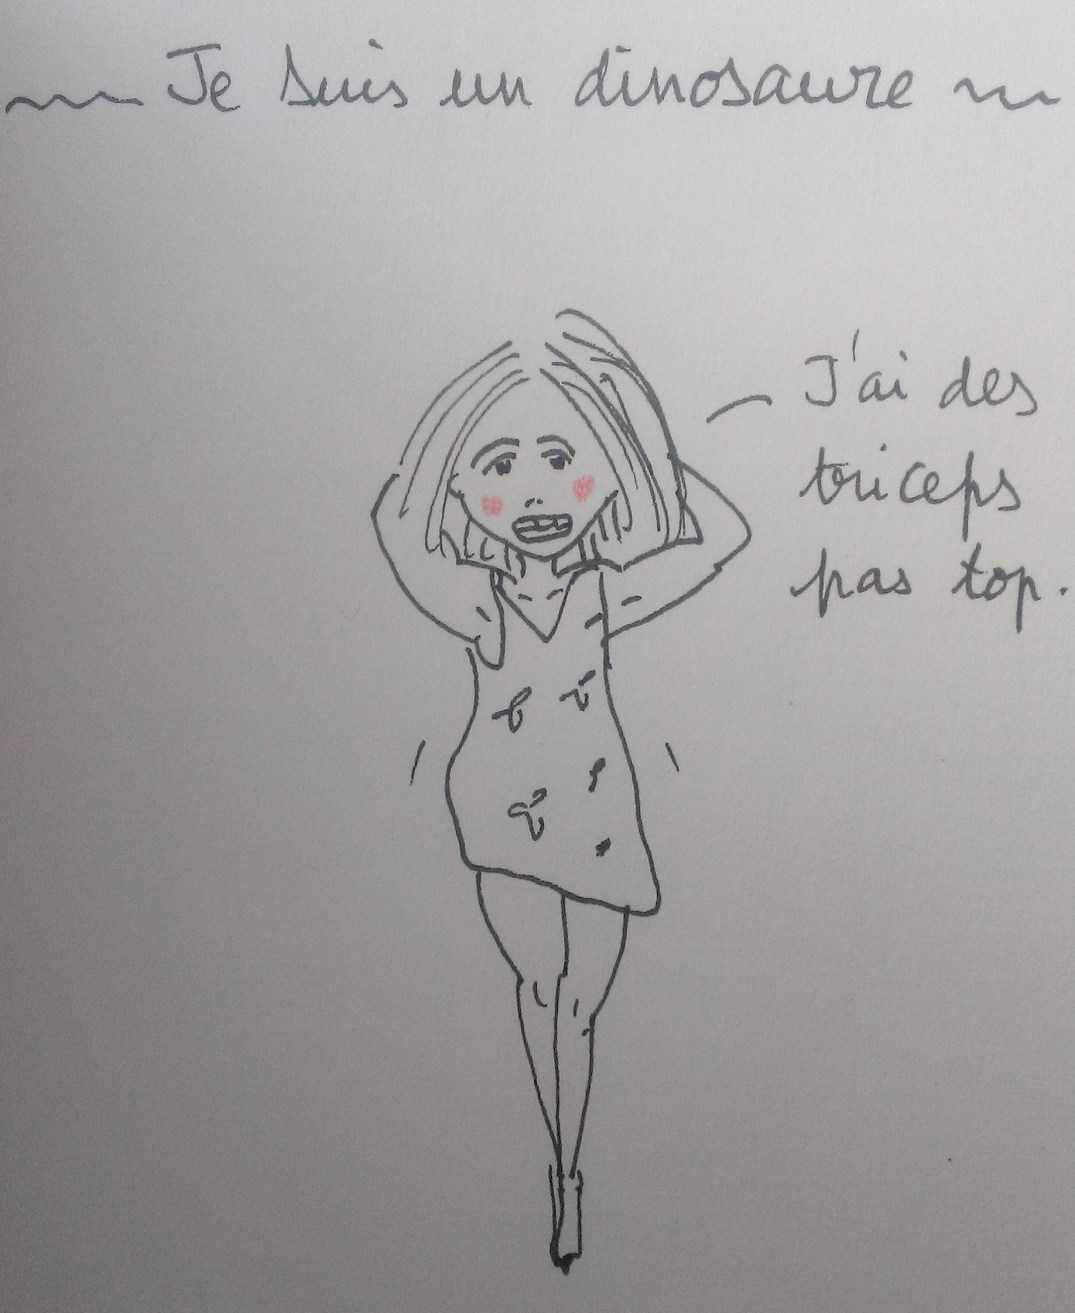 Je suis un dinosaure
J'ai des
triceps
pas top.